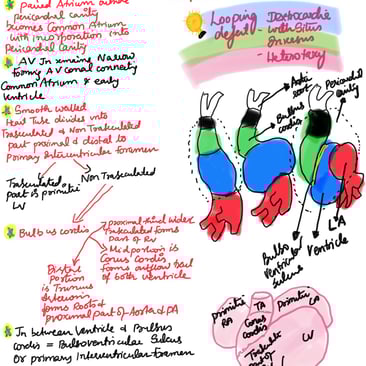 paired Atrium outside
pericardial cavity
becomes Common Atrium
with incorporation into
Pericardial Cavity
AV Jn remains Narrow
forming AV canal connects
Common Atrium & early
ventricle
Smooth walled
Heart Tube divides into
Trabeculated & Non Trabeculated
part proximal & distal to
Primary Interventricular foramen
Trabeculated
part is primitive
LV
Non Trabeculated
Bulbus cordis
proximal third wider
trabeculated forms
part of RV
Midportion is
Conus Cordis
forms outflow
of both ventricle
Distal
Portion
is Truncus
Arteriosus
forms Roots &
proximal part of Aorta & PA
In between Ventricle & Bulbus
Cordis = Bulboventricular Sulcus
or primary Interventricular foramen
Looping
defect
- Dextrocardia
with Situs
Inversus
- Heterotaxy
Aortic
root
Bulbus
Cordis
Pericardial
Cavity
Bulbo
ventricular
Sulcus
Ventricle
LA
primitive
RA
TA
Primitive
LA
Conus
Cordis
Trabeculated
part of
LV